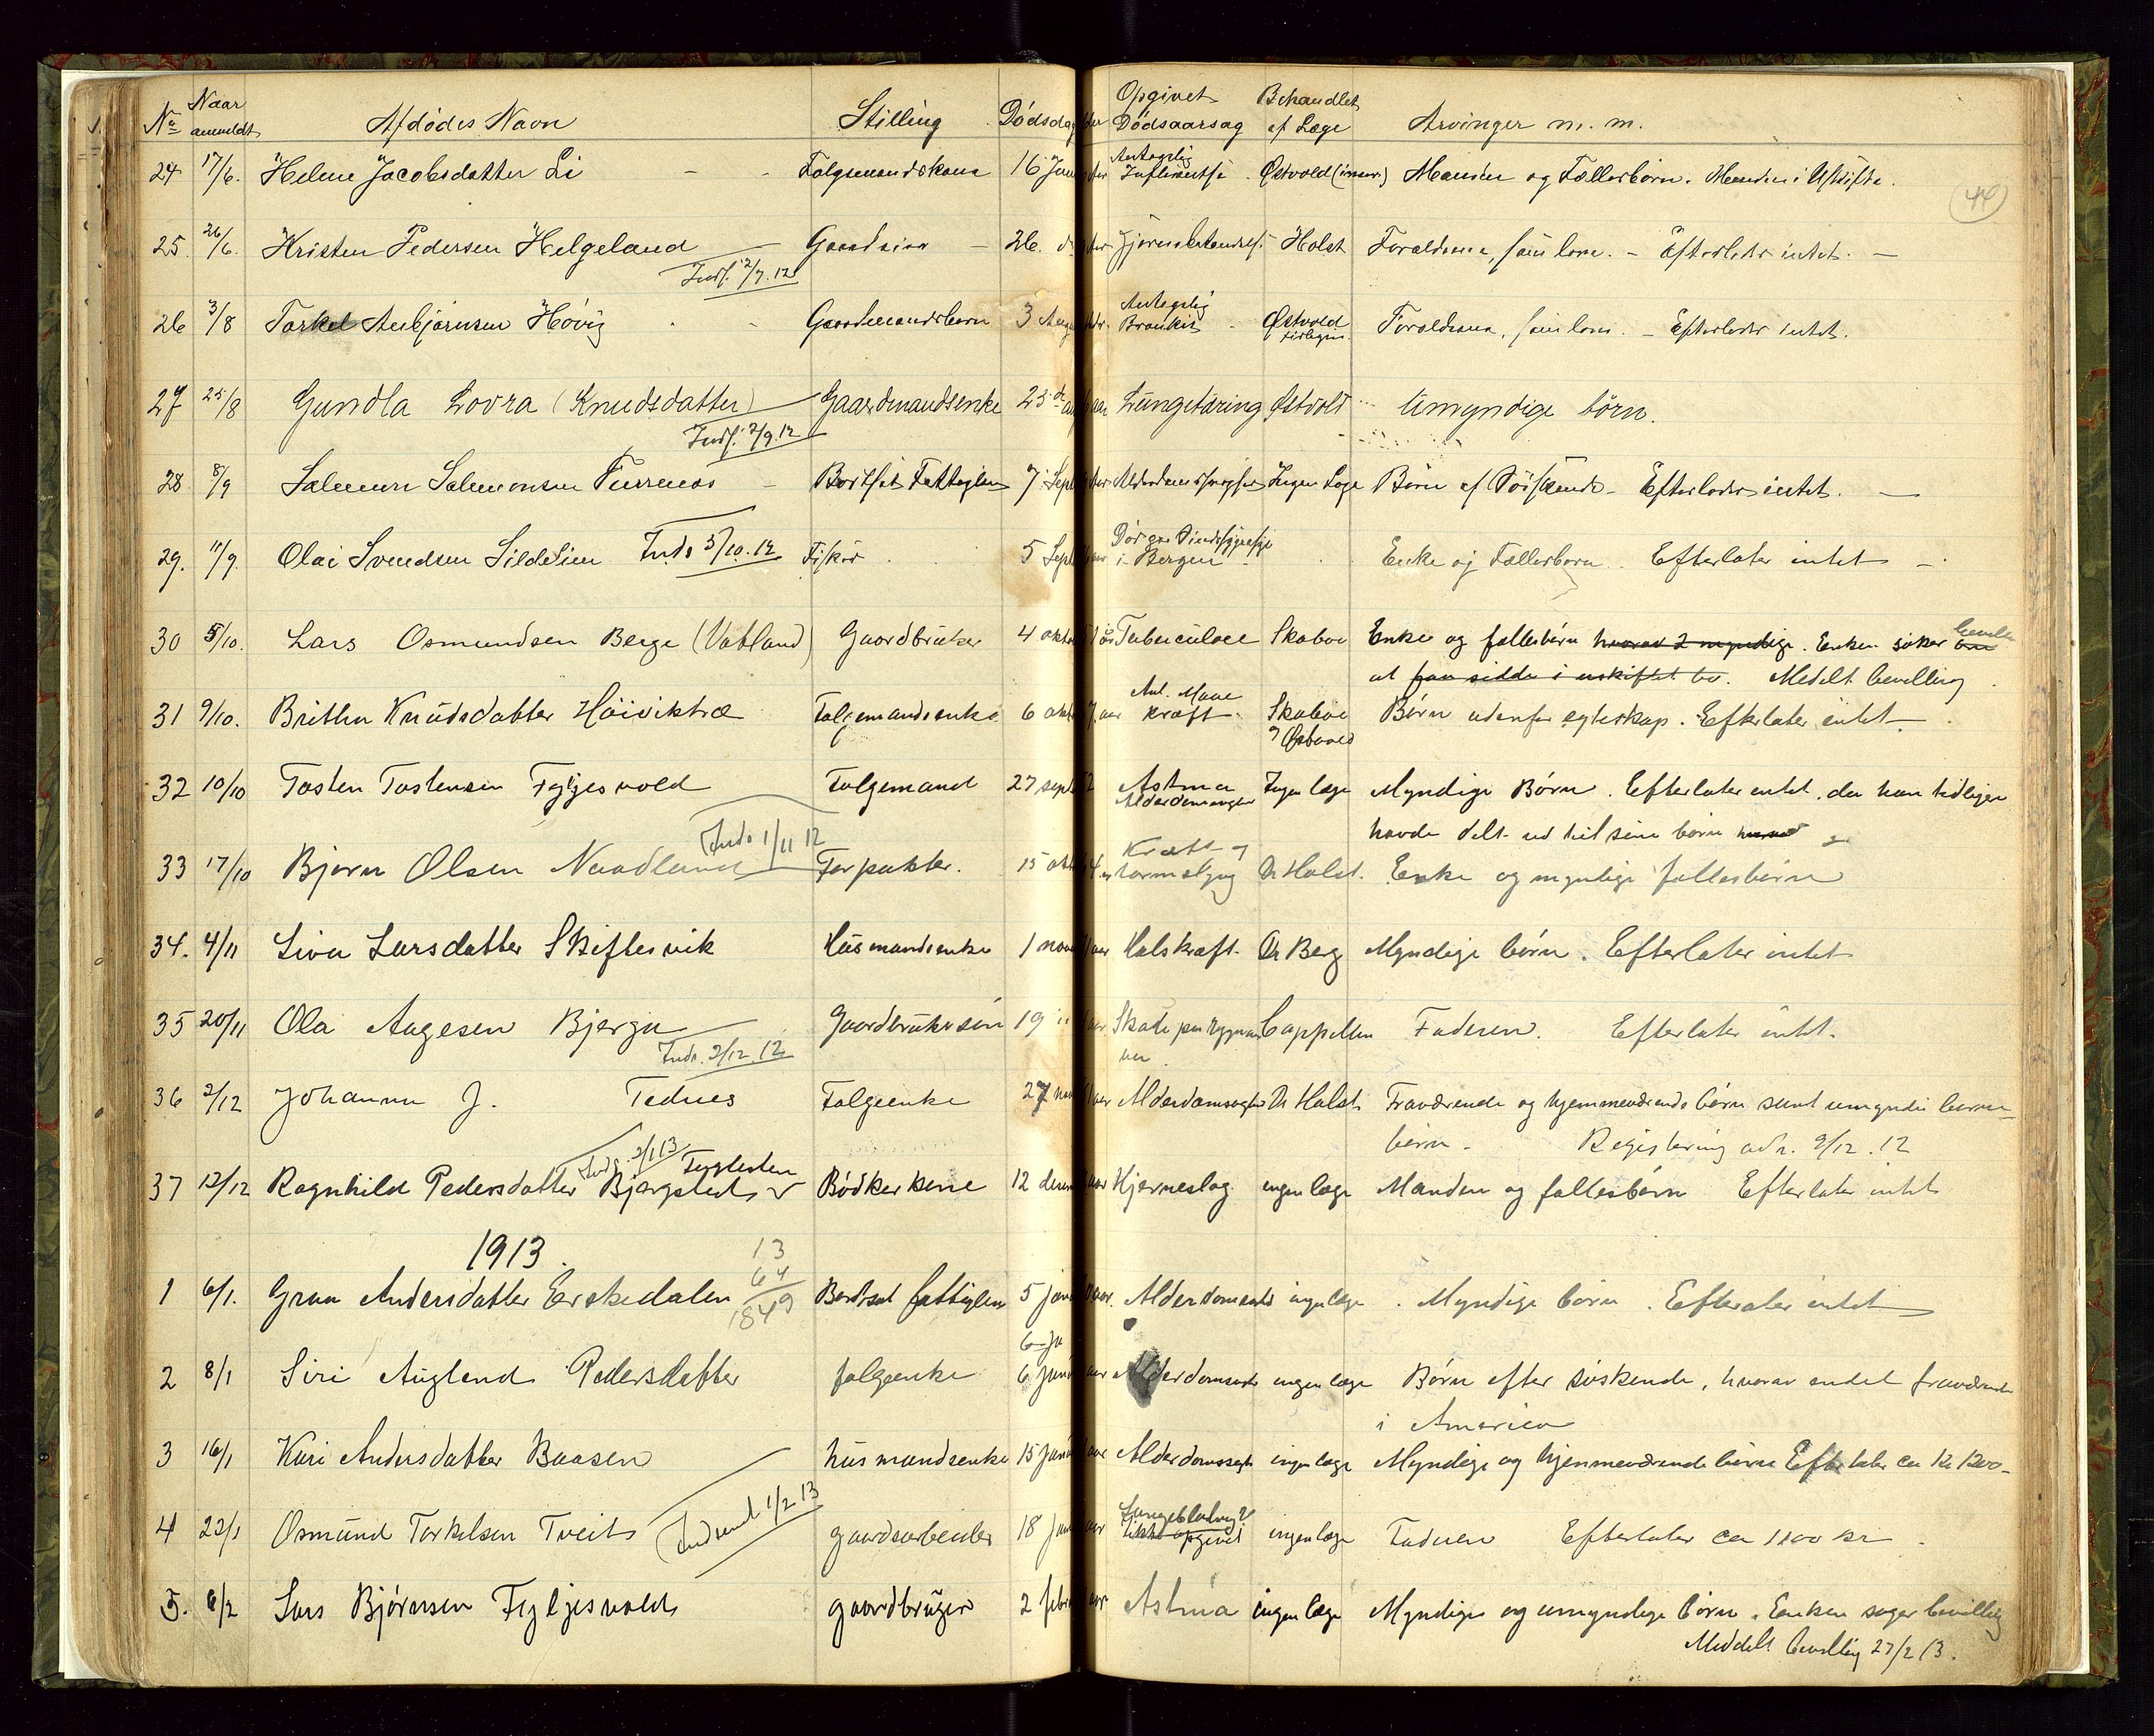 Nº Naar anmeldt Afdødes Navn Stilling Dødsdag Opgivet Dødsaarsag Behandlet af Læge Arvinger m. m.
44
24 17/6. Helene Jacobsdatter Li - - Følgemandskone 16 Juni Antagelig Influentse Østvold Manden og Fællesbørn. Manden i Uskifte.
25. 26/6. Kristen Pedersen Helgeland Gaardeier 26. Holst Forældrene, som love. - Efterlader intet. -
Indf. 2/7.12
26 3/8 Torkel Anbjørnsen Høvig Gaardmandsbarn 3 Aug Antagelig Bronkit Østvold Forældrene, som love. - Efterlader intet.
27 25/8 Gundla Lovra (Knudsdatter) Gaardmandsenke 23de Lungetæring Østvold Umyndige børn.
Indf. 2/9.12
28 8/9 Salemon Salemonsen - 7 Sept Ingen Læge Børn af Søskende - Efterlader intet. -
29. 11/9. Olai Svendsen Sildelien Inds 5/10.12 Fisker 5 Sept i Bergen Enke og Fællesbørn. Efterlater intet -
30 5/10. Lars Osmundsen Berge (Vatland) Gaardbruker 4 okto Tuberculose Skaboe Enke og fællesbørn hvorav 2 myndige. Enken søker om bevilln
at faa sidde i uskiftet bo. Medelt bevilling
31 9/10. Brithe Knudsdatter Høiviktræ Følgemandsenke 6 okto aar Ant. Mave kræft. Skaboe Børn udenfor egteskap. Efterlater intet -
og Østvold
32 10/10 Tosten Tostensen Fylgjesvold Følgemand 27 sept Astma Alderdomssvaghet Ingen læge Myndige Børn. Efterlater intet, da han tidligere
havde delt ud til sine børn
Inds 1/11 12
33 17/10 Bjørn Olsen Naadland Forpakter. 15 okt Kræft og Dr Holst. Enke og myndige fællesbørn
34. 4/11 Siva Larsdatter Skiftesvik Husmandsenke 1 nov aar Halskræft Dr Berg Myndige børn. Efterlater intet
35 20/11 Ola Aagesen Bjerga Gaardbrukersøn 19 " aar Skade paa rygmar Cappellen Faderen. Efterlater intet.
Inds. 2/12.12 ven
36 2/12 Johanna J. Tednes Følgeenke 27 nov aar Alderdomssvaghet Dr Holst Fraværende og hjemmeværende børn samt umyndie børne-
børn - Registering avh. 9/12.12
Inds. 2/1 13
37 12/12 Ragnhild Pedersdatter Bjergsted Bødkerkone 12 decem aar Hjerneslag ingen læge Manden og fællesbørn Efterlater intet
1913.
13
64
1849
1 6/1. Gran Andersdatter Erskedalen Bordsat fattiglem 5 janu aar. Alderdomssvd ingen læge. Myndige børn. Efterlater intet
6 Ja
2 8/1 Siri Augland Pedersdatter følgeenke 6 janu aar Alderdomssvd ingen læge Børn efter søskende, hvorav endel fraværende
i America
3 16/1 Kari Andersdatter Baasen husmandsenke 15 janu aar Alderdomssvagh ingen læge Myndige og hjemmeværende børn Efterlater ca Kr 1200-
4 22/1 Osmund Torkelsen Tveit Indsendt 1/2 13 gaardsarbeider 18 janu aar Lungebetændelse? ikke opgivet ingen læge Faderen Efterlater ca 1100 kr.
5. 6/2 Lars Bjørnsen Fylgjesvold gaardbruger 2 febru aar Astma ingen læge Myndige og umyndige børn. Enken søger bevilling
Meddelt bevilling 27/2 13.